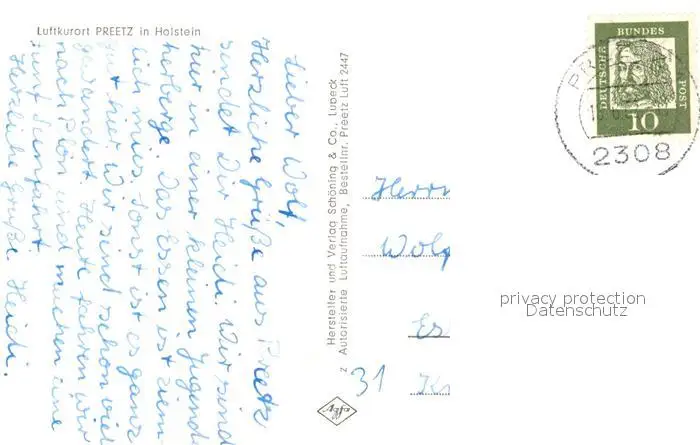 Luftkurort PREETZ in Holstein
Lieber Wolf,
Herzliche Grüße aus Preetz
sendet Dir Heidi. Wir sind
hier in einer kleinen Jugend-
herberge. Das Essen ist ziem-
lich mies. Sonst ist es ganz
gut hier. Wir sind schon viel
gewandert. Heute fahren wir
nach Plön und machen eine
Fünf Seenfahrt
Herzliche Grüße Heidi.
Hersteller und Verlag Schöning & Co., Lübeck
z Autorisierte Luftaufnahme, Bestellnr. Preetz Luft 2447
Agfa
DEUTSCHE BUNDESPOST
10
2308
Herrn
Wolf
Es
31 Kr
privacy protection
Datenschutz